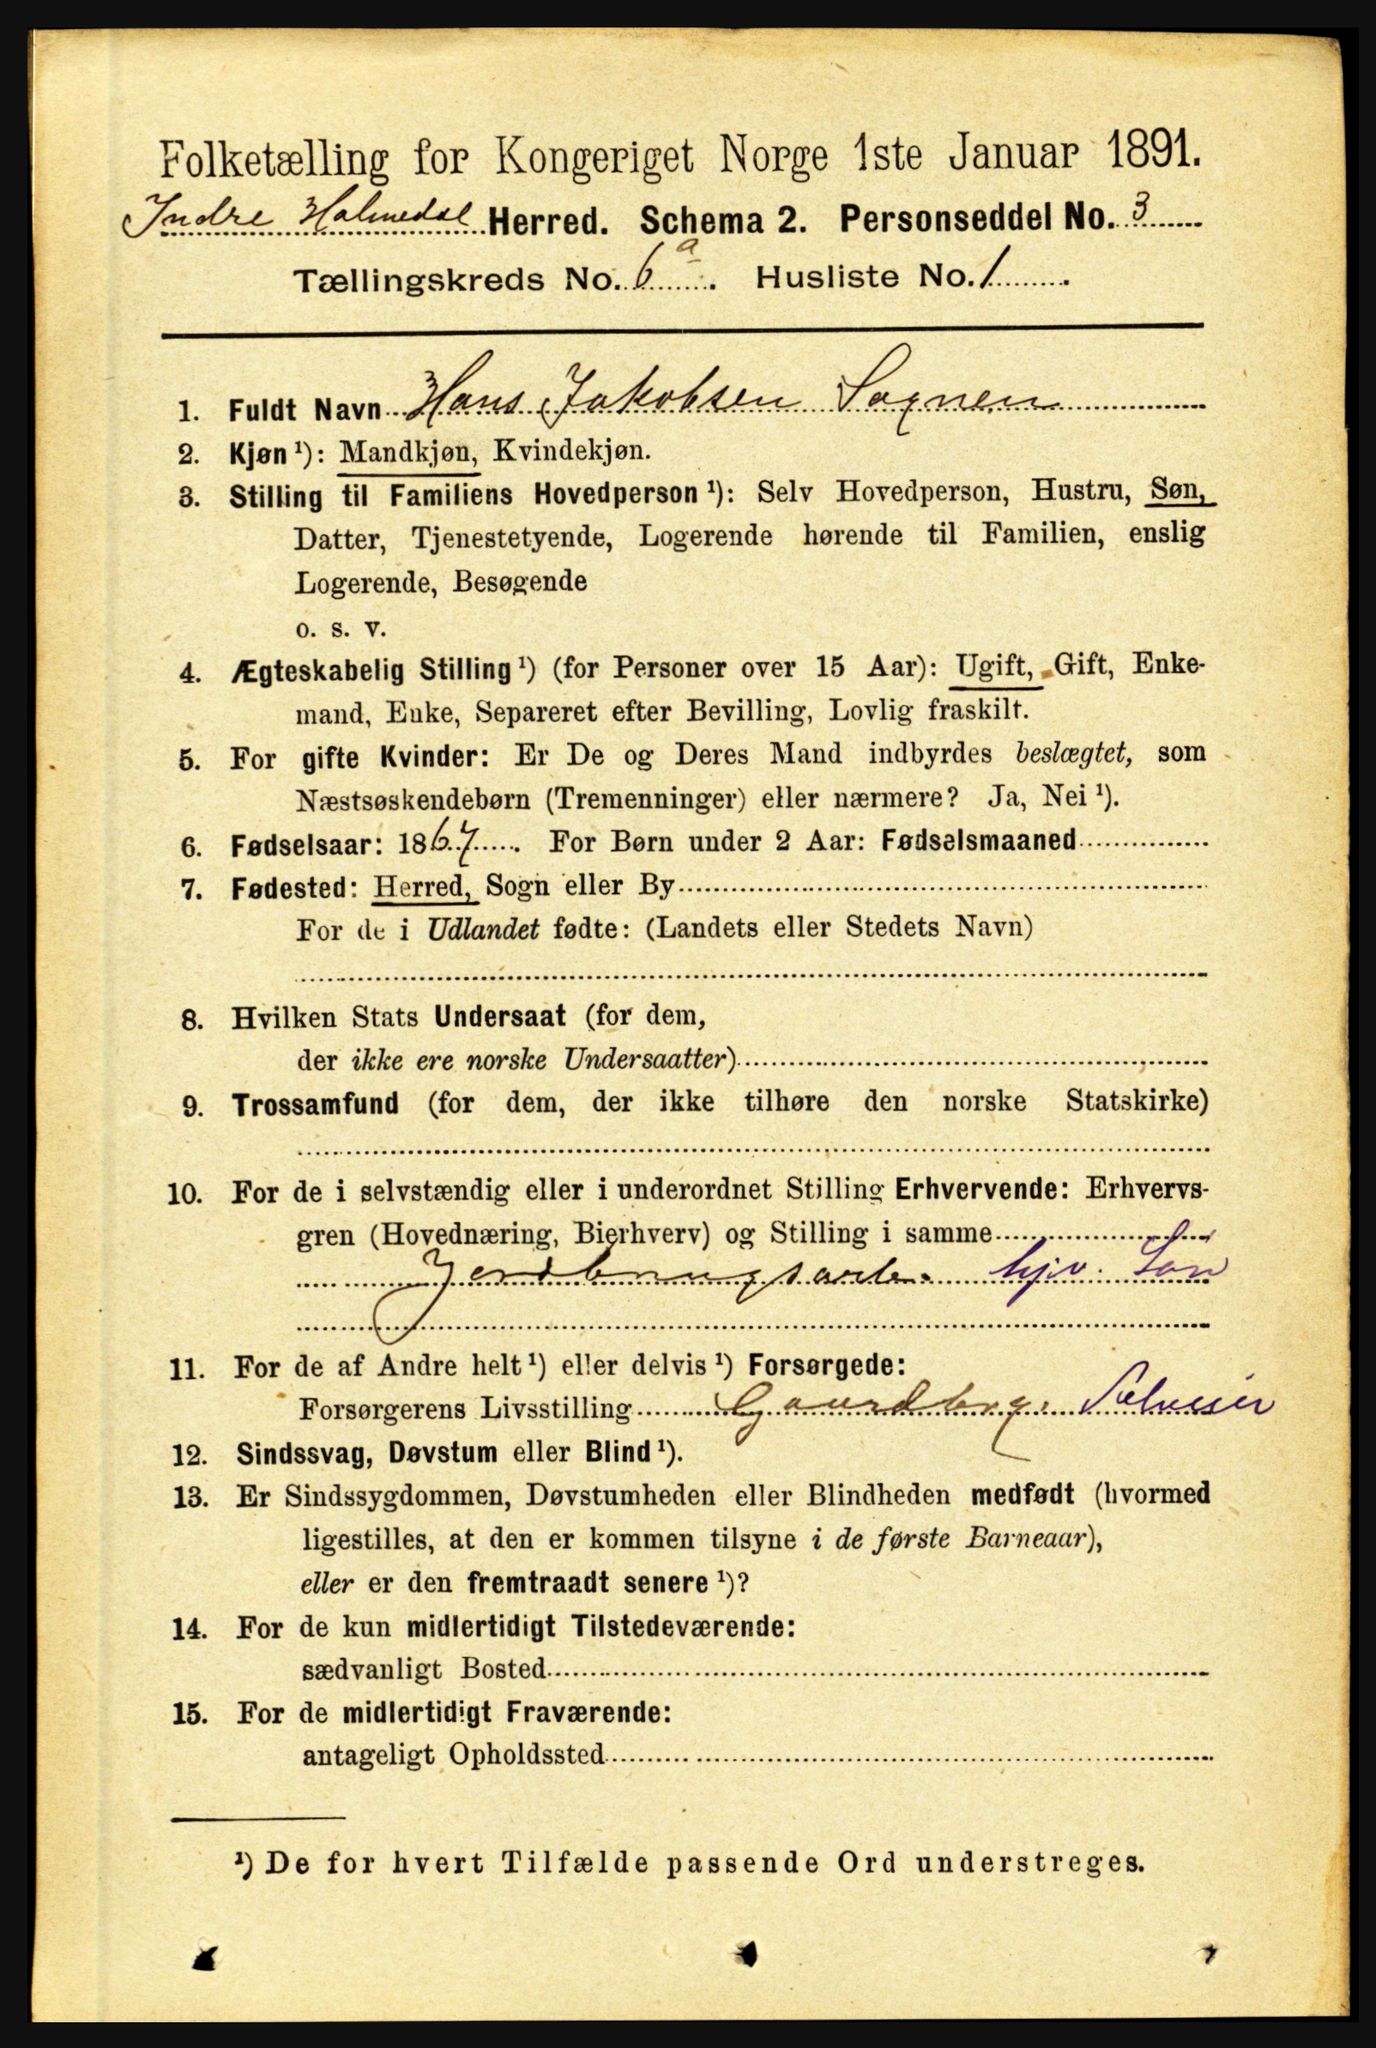 Folketælling for Kongeriget Norge 1ste Januar 1891.
Indre Holmedal Herred. Schema 2. Personseddel No. 3
Tællingskreds No. 6a. Husliste No. 1
1. Fuldt Navn Hans Jakobsen Sognen
2. Kjøn¹): Mandkjøn, Kvindekjøn.
3. Stilling til Familiens Hovedperson¹): Selv Hovedperson, Hustru, Søn,
Datter, Tjenestetyende, Logerende hørende til Familien, enslig
Logerende, Besøgende
o. s. v.
4. Ægteskabelig Stilling¹) (for Personer over 15 Aar): Ugift, Gift, Enke-
mand, Enke, Separeret efter Bevilling, Lovlig fraskilt.
5. For gifte Kvinder: Er De og Deres Mand indbyrdes beslægtet, som
Næstsøskendebørn (Tremenninger) eller nærmere? Ja, Nei¹).
6. Fødselsaar: 1867. For Børn under 2 Aar: Fødselsmaaned
7. Fødested: Herred, Sogn eller By
For de i Udlandet fødte: (Landets eller Stedets Navn)
8. Hvilken Stats Undersaat (for dem,
der ikke ere norske Undersaatter)
9. Trossamfund (for dem, der ikke tilhøre den norske Statskirke)
10. For de i selvstændig eller i underordnet Stilling Erhvervende: Erhvervs-
gren (Hovednæring, Bierhverv) og Stilling i samme
Jordbrugsarb. hjv. Søn
11. For de af Andre helt¹) eller delvis¹) Forsørgede:
Forsørgerens Livsstilling Gaardbrg. Selveier
12. Sindssvag, Døvstum eller Blind¹).
13. Er Sindssygdommen, Døvstumheden eller Blindheden medfødt (hvormed
ligestilles, at den er kommen tilsyne i de første Barneaar),
eller er den fremtraadt senere¹)?
14. For de kun midlertidigt Tilstedeværende:
sædvanligt Bosted
15. For de midlertidigt Fraværende:
antageligt Opholdssted
¹) De for hvert Tilfælde passende Ord understreges.